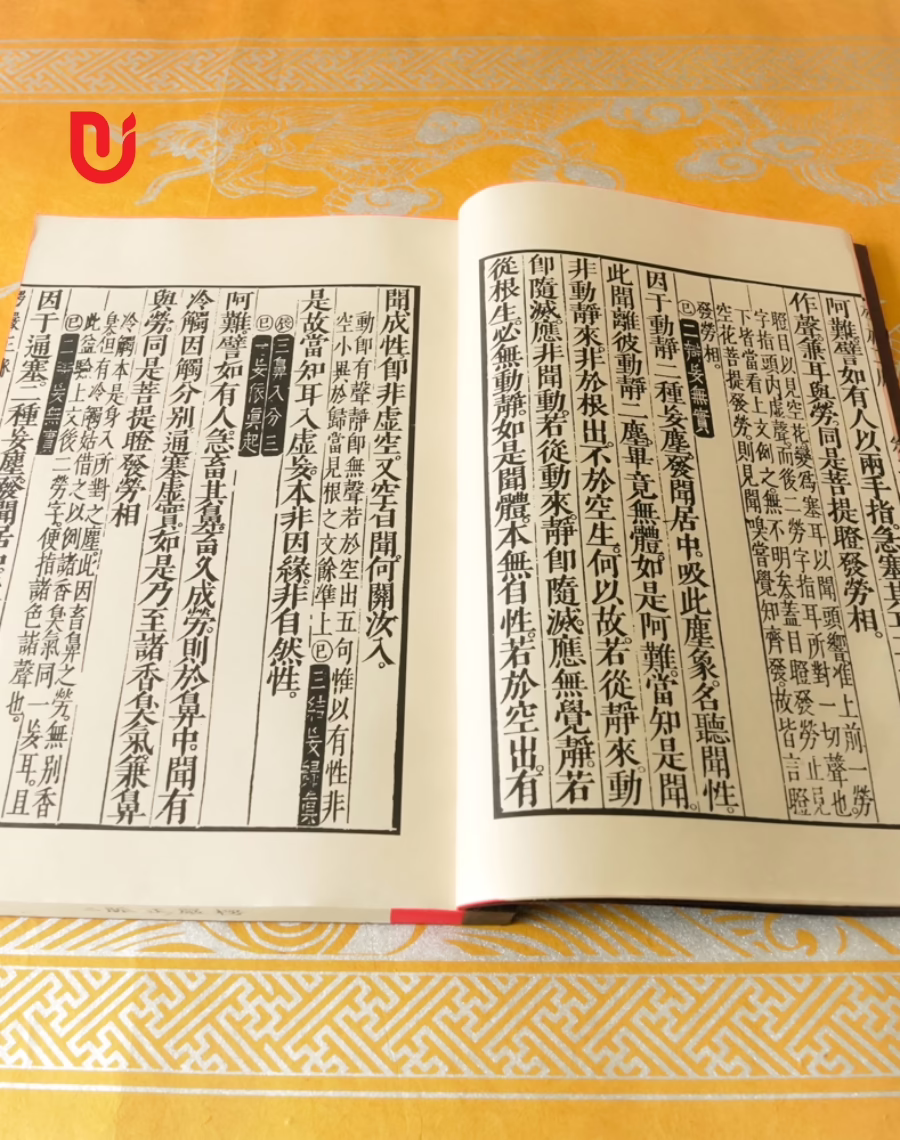 阿難。譬如有人以兩手指。急塞其
作聲。兼耳與勞。同是菩提瞪發勞相。
瞪目以見空花。變為塞耳以聞頭響。惟上前一勞
字指頭內虛聲。而後二勞字。指耳所對一切聲也。
下皆當看上文例之。無不明矣。蓋目瞪發勞。止見
空花。菩提發勞。則見聞嗅嘗覺知齊發。故皆言瞪
發勞相。
㊁二辨妄無實
因于動靜二種妄塵。發聞居中。吸此塵象。名聽聞性。
此聞離彼動靜二塵。畢竟無體。如是阿難。當知是聞。
非動靜來。非於根出。不於空生。何以故。若從靜來。動
即隨滅。應非聞動。若從動來。靜即隨滅。應無覺靜。若
從根生。必無動靜。如是聞體。本無自性。若於空出。有
聞成性。即非虛空。又空自聞。何關汝入。
動即有聲。靜即無聲。若於空出五句。惟以有性非
空。小異於歸當見根之文。餘準上。㊁三結妄歸真
是故當知。耳入虛妄。本非因緣。非自然性。
㊂三鼻入分三
㊁一妄依真起
阿難。譬如有人。急畜其鼻。畜久成勞。則於鼻中。聞有
冷觸。因觸分別。通塞虛實。如是乃至諸香臭氣。兼鼻
與勞。同是菩提瞪發勞相
冷觸本是身入所對之塵。此因畜鼻之勞。無別香
臭。但有冷觸。姑借之以例諸香臭氣。同一妄耳。且
此益驗上文後二勞字。便指諸色諸聲也。
㊁二辨妄無實
因于通塞。二種妄塵。發聞居